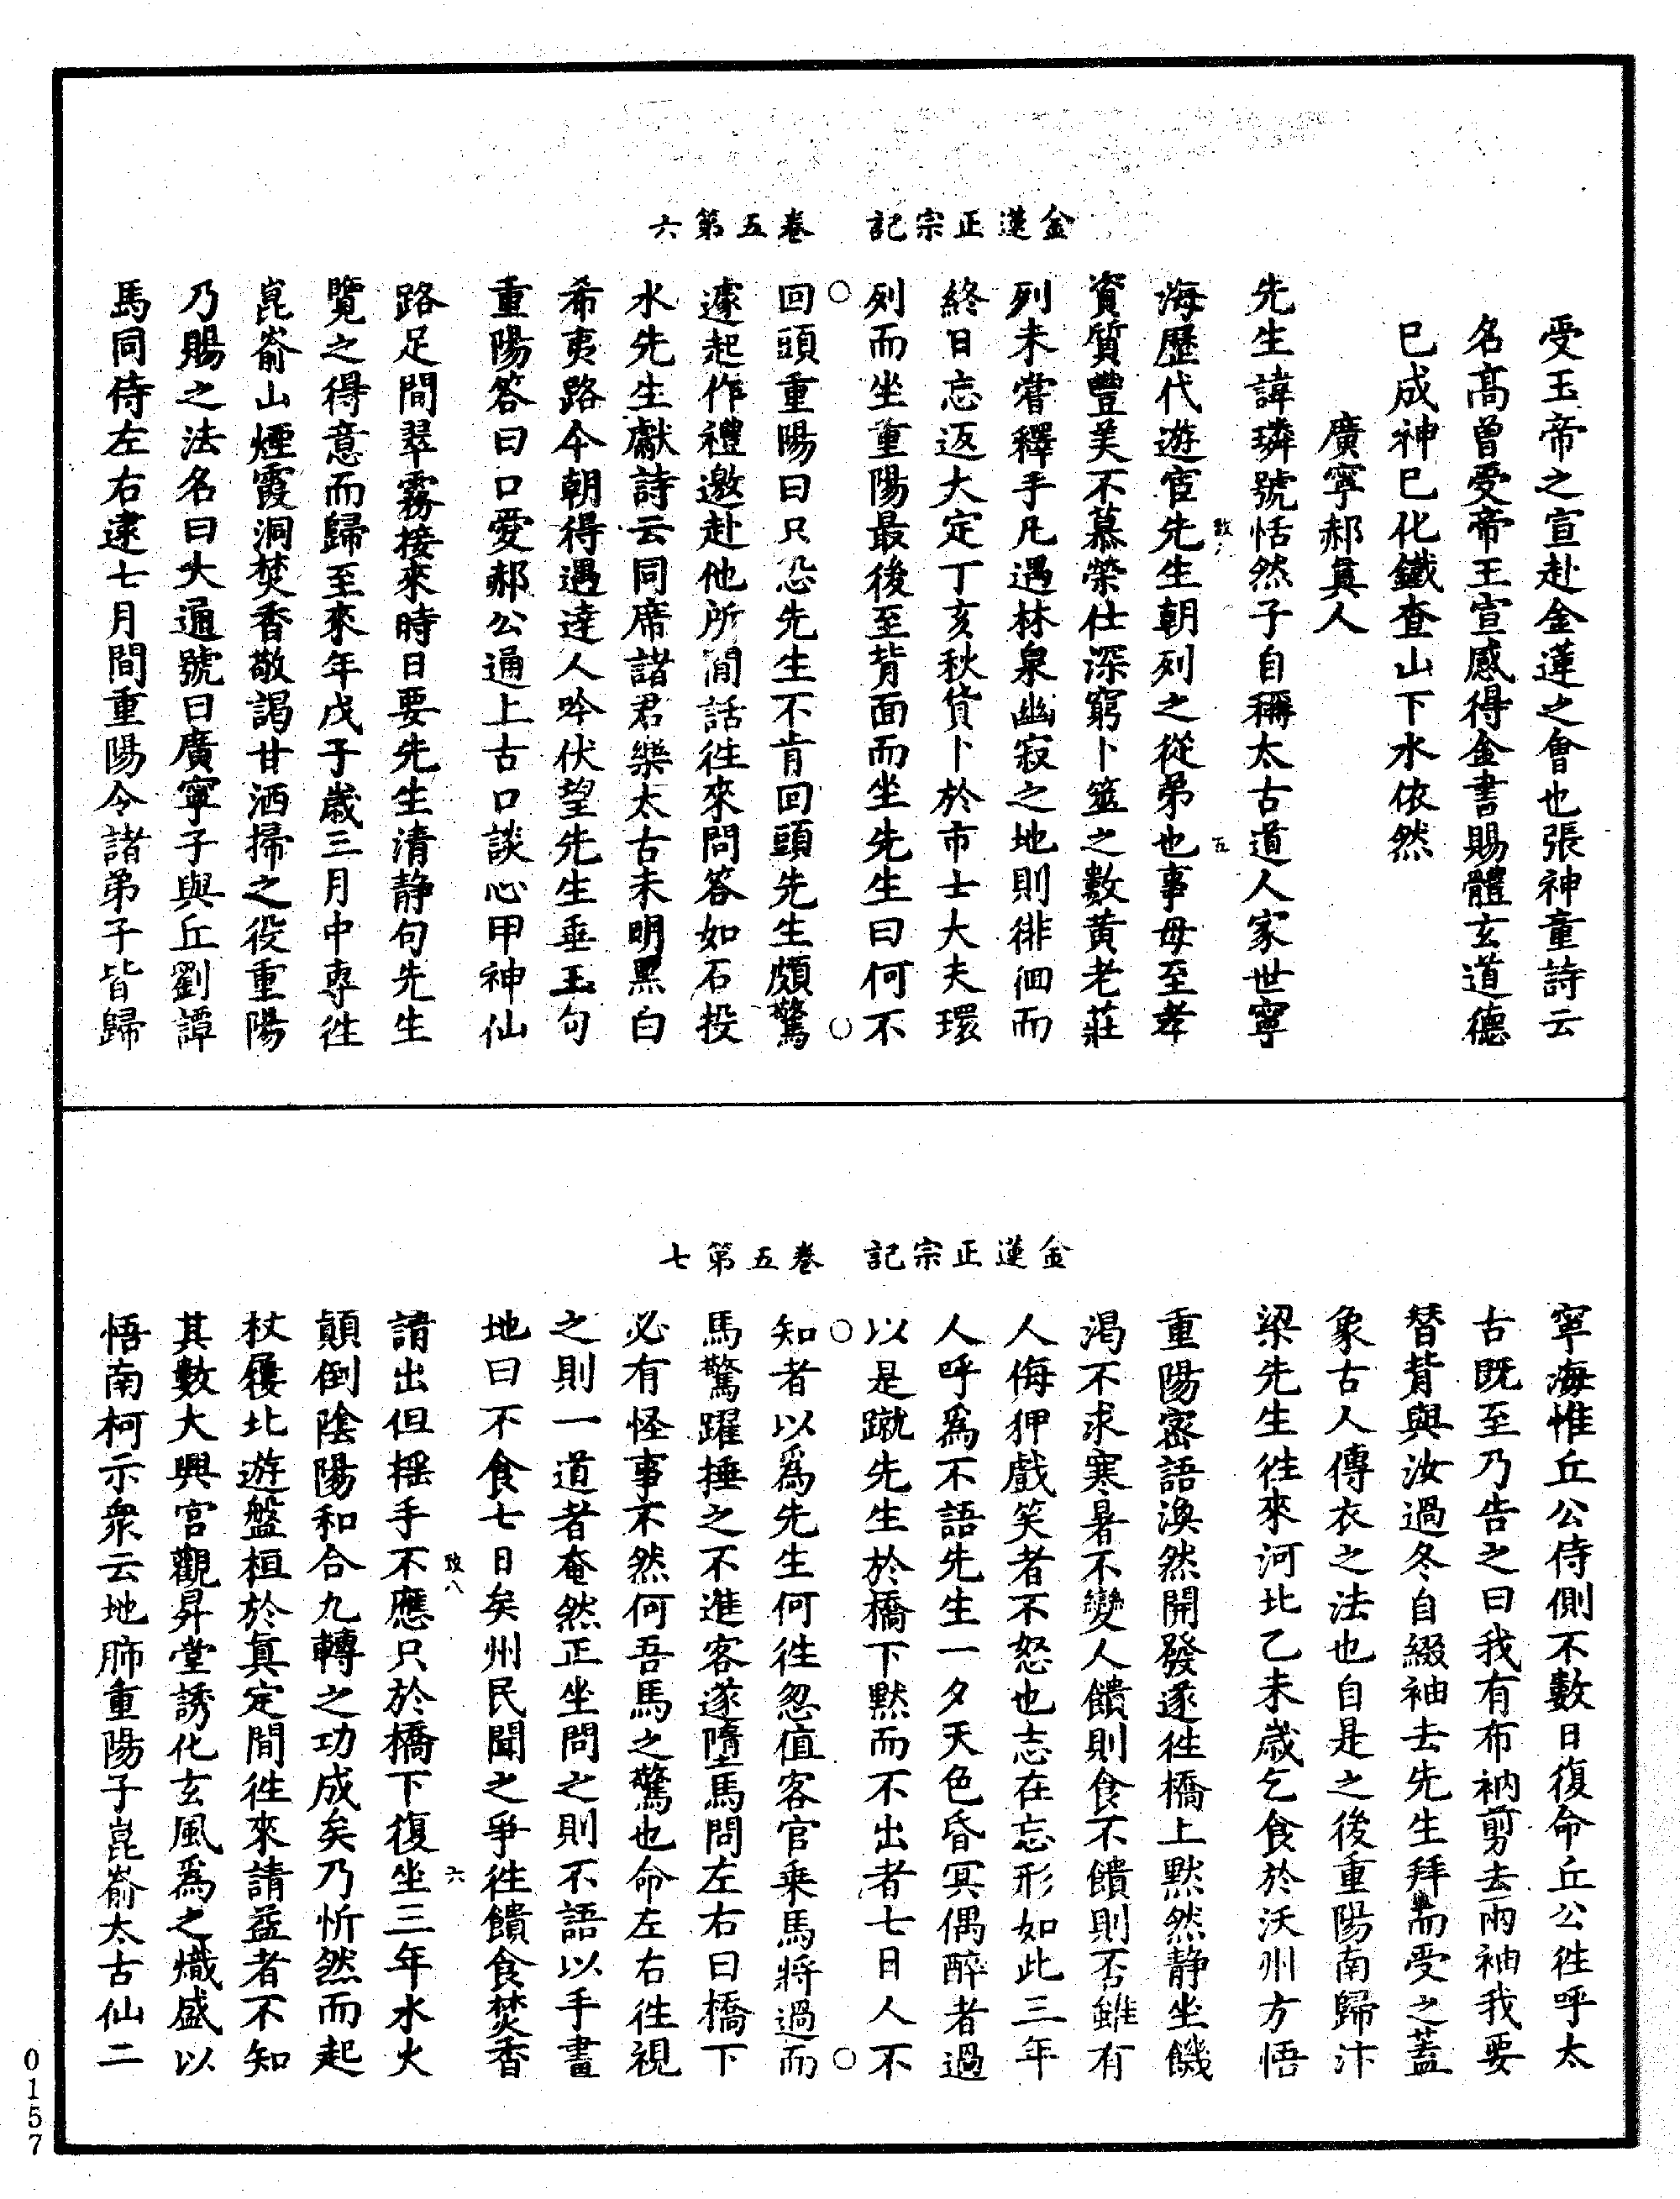 金蓮正宗記　卷五第六
受玉帝之宣赴金蓮之會也張神童詩云
名高曾受帝王宣感得金書賜體玄道德
已成神已化鐵查山下水依然
廣寧郝眞人
先生諱璘號恬然子自稱太古道人家世寧
五
海歷代遊宦先生朝列之從弟也事母至孝
資質豐美不慕榮仕深窮卜筮之數黃老莊
列未嘗釋手凡遇林泉幽寂之地則徘徊而
終日忘返大定丁亥秋貨卜於市士大夫環
列而坐重陽最後至背面而坐先生曰何不
回頭重陽曰只恐先生不肯回頭先生頗驚
遽起作禮邀赴他所閒話往來問答如石投
水先生獻詩云同席諸君樂太古未明黑白
希夷路今朝得遇達人吟伏望先生垂玉句
重陽答曰口愛郝公通上古口談心甲神仙
路足間翠霧接來時日要先生清靜句先生
覽之得意而歸至來年戊子歲三月中專往
崑嵛山煙霞洞焚香敬謁甘洒掃之役重陽
乃賜之法名曰大通號曰廣寧子與丘劉譚
馬同侍左右逮七月間重陽令諸弟子皆歸
金蓮正宗記　卷五第七
寧海惟丘公侍側不數日復命丘公往呼太
古既至乃告之曰我有布衲剪去兩袖我要
替背與汝過冬自綴袖去先生拜而受之蓋
象古人傳衣之法也自是之後重陽南歸汴
梁先生往來河北乙未歲乞食於沃州方悟
重陽密語渙然開發遂往橋上默然靜坐饑
渴不求寒暑不變人饋則食不饋則否雖有
人侮狎戲笑者不怒也志在忘形如此三年
人呼爲不語先生一夕天色昏冥偶醉者過
以是蹴先生於橋下默而不出者七日人不
知者以爲先生何往忽値客官乘馬將過而
馬驚躍捶之不進客遂墮馬問左右曰橋下
必有怪事不然何吾馬之驚也命左右往視
之則一道者奄然正坐問之則不語以手畫
地曰不食七日矣州民聞之爭往饋食焚香
致八　六
請出但搖手不應只於橋下復坐三年水火
顛倒陰陽和合九轉之功成矣乃忻然而起
杖屨北遊盤桓於眞定間往來請益者不知
其數大興宮觀昇堂誘化玄風爲之熾盛以
悟南柯示衆云地肺重陽子崑嵛太古仙二
0157